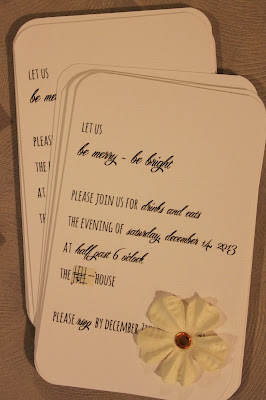 LET US
be me
PLEASE
THE
AT
THE
LET US
be merry - be bright
PLEASE JOIN US FOR drinks and eats
THE EVENING OF saturday, december 14, 2013
AT half past 6 o'clock
THE HOUSE
PLEASE rsvp BY DECEMBER